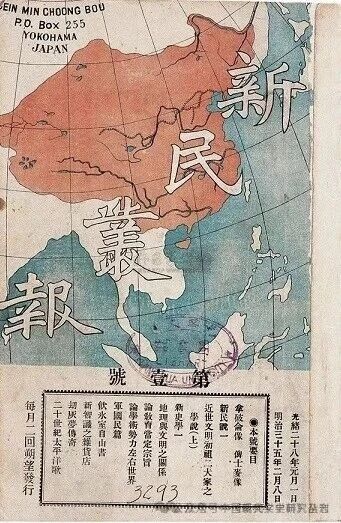 SEIN MIN CHOONG BOU
P.O. Box 255
YOKOHAMA
JAPAN
新民叢報
第壹號
光緒二十八年元月一日
明治三十五年二月八日
◉本號要目
拿破侖像 俾士麥像
新民說一
近世文明初祖二大家之
學說(上)
新史學一
地理與文明之關係
論敎育當定宗旨
論學術勢力左右世界
軍國民篇
飲氷室自由書
新智識之雜貨店
刼灰夢傳奇
二十世紀太平洋歌
每月二回朔望發行
3293